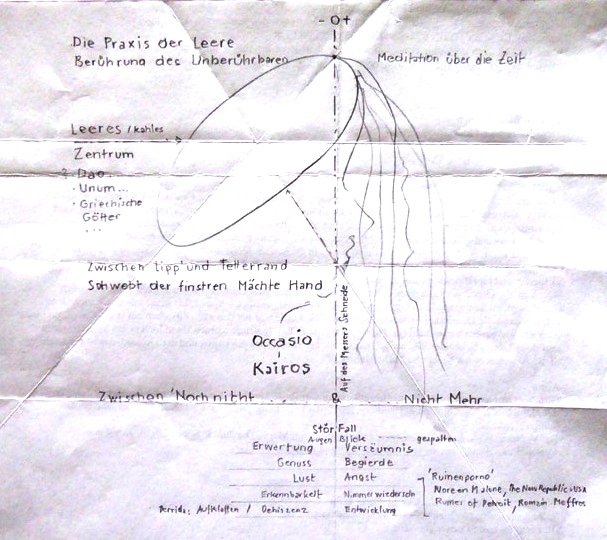 - 0 +
Die Praxis der Leere
Berührung des Unberührbaren
Meditation über die Zeit
Leeres / kahles
Zentrum
? Dao
· Unum...
· Griechische
Götter
...
Zwischen Lipp' und Kelterrand
Schwebt der finstren Mächte Hand
Auf des Messers Schneide
Occasio
Kairos
Zwischen 'Noch nicht ... & Nicht Mehr
Stör, Fall
Augen Blicke ------ gespalten
Erwertung Versäumnis
Genuss Begierde
Lust Angst
Erkennbarkeit Nimmerwiedersehn
Derrida: Aufklaffen / Dehiszenz Entwicklung
'Ruinenporno'
Noreen Malone, The New Republic USA
Ruins of Detroit, Romain Meffre